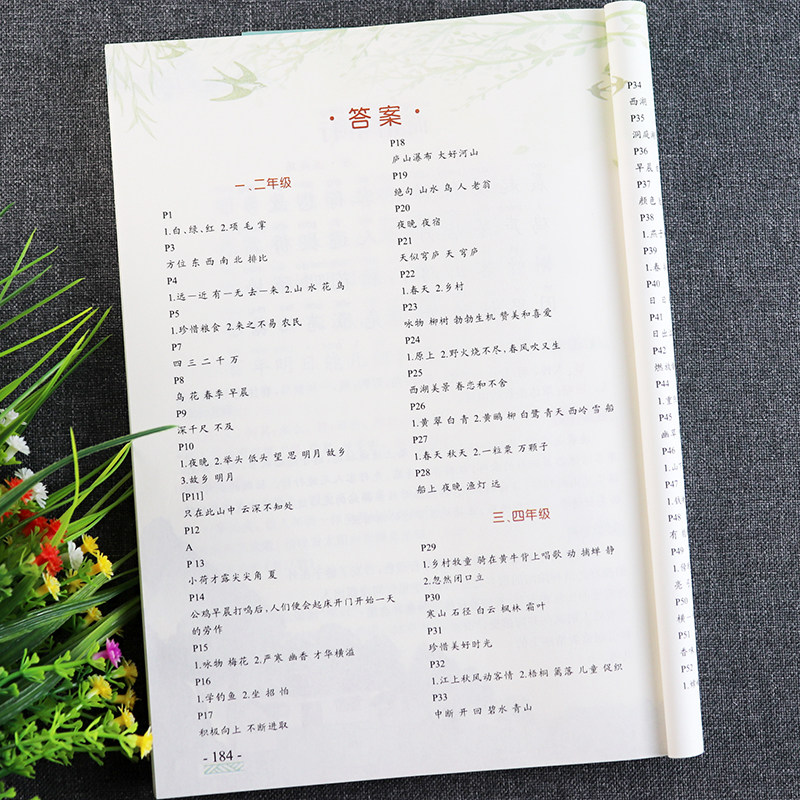 ·答案·
一、二年级
P1
1.白、绿、红 2.项 毛 掌
P3
方位 东 西 南 北 排比
P4
1.远—近 有—无 去—来 2.山 水 花 鸟
P5
1.珍惜粮食 2.来之不易 农民
P7
四 三 二 千 万
P8
鸟 花 春季 早晨
P9
深千尺 不及
P10
1.夜晚 2.举头 低头 望 思 明月 故乡
3.故乡 明月
[P11]
只在此山中 云深不知处
P12
A
P 13
小荷才露尖尖角 夏
P14
公鸡早晨打鸣后,人们便会起床开门开始一天
的劳作
P15
1.咏物 梅花 2.严寒 幽香 才华横溢
P16
1.学钓鱼 2.坐 招 怕
P17
积极向上 不断进取
P18
庐山瀑布 大好河山
P19
绝句 山水 鸟 人 老翁
P20
夜晚 夜宿
P21
天似穹庐 天 穹庐
P22
1.春天 2.乡村
P23
咏物 柳树 勃勃生机 赞美和喜爱
P24
1.原上 2.野火烧不尽,春风吹又生
P25
西湖美景 春恋和不舍
P26
1.黄 翠 白 青 2.黄鹂 柳 白鹭 青天 西岭 雪 船
P27
1.春天 秋天 2.一粒粟 万颗子
P28
船上 夜晚 渔灯 远
三、四年级
P29
1.乡村牧童 骑在黄牛背上唱歌 动 捕蝉 静
2.忽然闭口立
P30
寒山 石径 白云 枫林 霜叶
P31
珍惜美好时光
P32
1.江上秋风动客情 2.梧桐 篱落 儿童 促织
P33
中断 开 回 碧水 青山
- 184 -
P34
西湖
P35
洞庭
P36
早晨
P37
颜色
P38
1.燕子
P39
1.春
P40
日
P41
日出
P42
燃放
P44
1.
P45
幽
P46
1.山
P47
1.
P48
有
P49
1.
亮
P50
横
P51
香
P52
1.